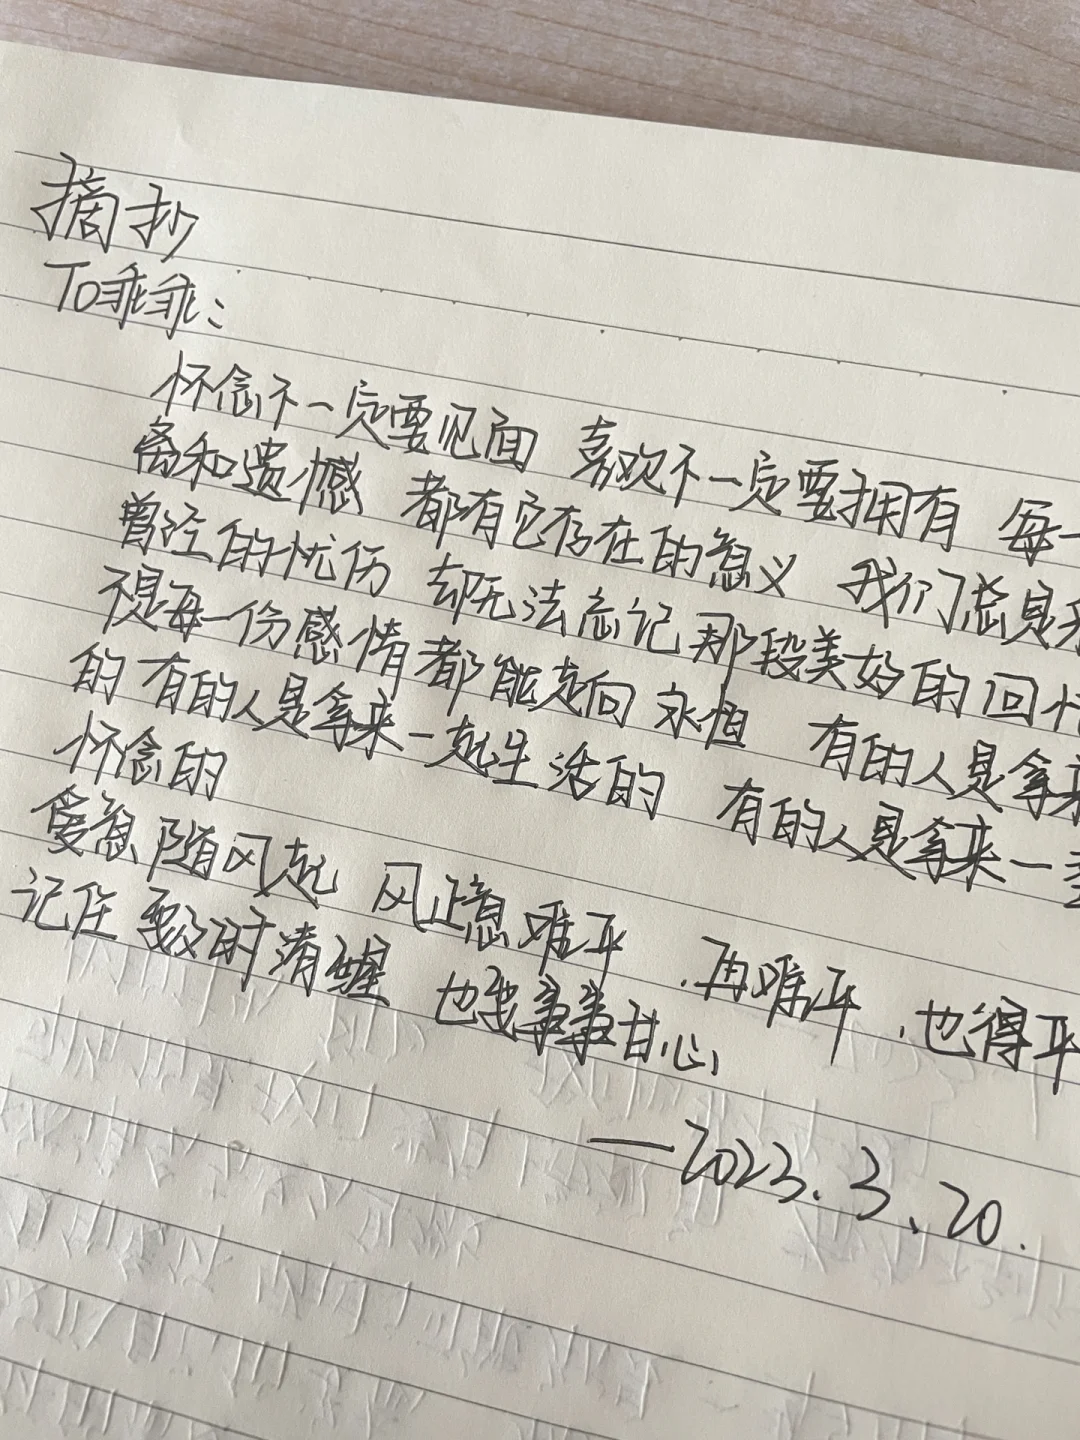 摘抄
To乖乖:
怀念不一定要见面 喜欢不一定要拥有 每一
离和遗憾 都有它存在的意义 我们总是
曾经的忧伤 却无法忘记那段美好的回忆
不是每一份感情都能走向永恒 有的人是拿来
的 有的人是拿来一起生活的 有的人是拿来一
怀念的
爱意随风起 风止意难平 再难平 也得平
记住 要及时清醒 也要事事甘心
—2023.3.20.